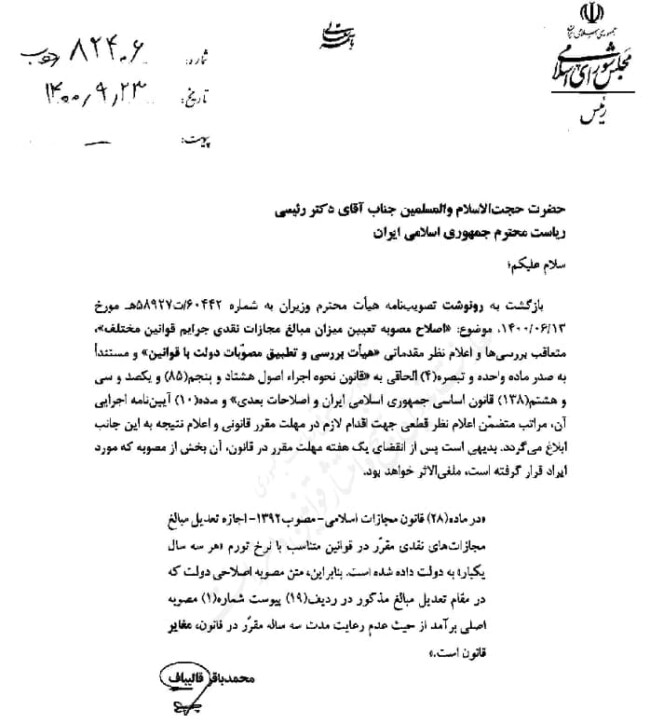 جمهوری اسلامی ایران
مجلس شورای اسلامی
رئیس
باسمه تعالی
شماره: ۸۲۴۰۶
تاریخ: ۱۴۰۰/۹/۲۳
پیوست: —
حضرت حجت‌الاسلام والمسلمین جناب آقای دکتر رئیسی
ریاست محترم جمهوری اسلامی ایران
سلام علیکم؛
بازگشت به رونوشت تصویب‌نامه هیأت محترم وزیران به شماره ۶۰۴۴۲/ت۵۸۹۲۷هـ مورخ
۱۴۰۰/۰۶/۱۳، موضوع: «اصلاح مصوبه تعیین میزان مبالغ مجازات نقدی جرایم قوانین مختلف»،
متعاقب بررسی‌ها و اعلام نظر مقدماتی «هیأت بررسی و تطبیق مصوّبات دولت با قوانین» و مستنداً
به صدر ماده واحده و تبصره(۴) الحاقی به «قانون نحوه اجراء اصول هشتاد و پنجم(۸۵) و یکصد و سی
و هشتم(۱۳۸) قانون اساسی جمهوری اسلامی ایران و اصلاحات بعدی» و ماده(۱۰) آیین‌نامه اجرایی
آن، مراتب متضمّن اعلام نظر قطعی جهت اقدام لازم در مهلت مقرر قانونی و اعلام نتیجه به این جانب
ابلاغ می‌گردد. بدیهی است پس از انقضای یک هفته مهلت مقرر در قانون، آن بخش از مصوبه که مورد
ایراد قرار گرفته است، ملغی‌الاثر خواهد بود.
«در ماده(۲۸) قانون مجازات اسلامی- مصوب۱۳۹۲- اجازه تعدیل مبالغ
مجازات‌های نقدی مقرّر در قوانین متناسب با نرخ تورم «هر سه سال
یکبار» به دولت داده شده است. بنابراین، متن مصوبه اصلاحی دولت که
در مقام تعدیل مبالغ مذکور در ردیف(۱۹) پیوست شماره(۱) مصوبه
اصلی برآمد از حیث عدم رعایت مدت سه ساله مقرّر در قانون، مغایر
قانون است.»
محمدباقر قالیباف